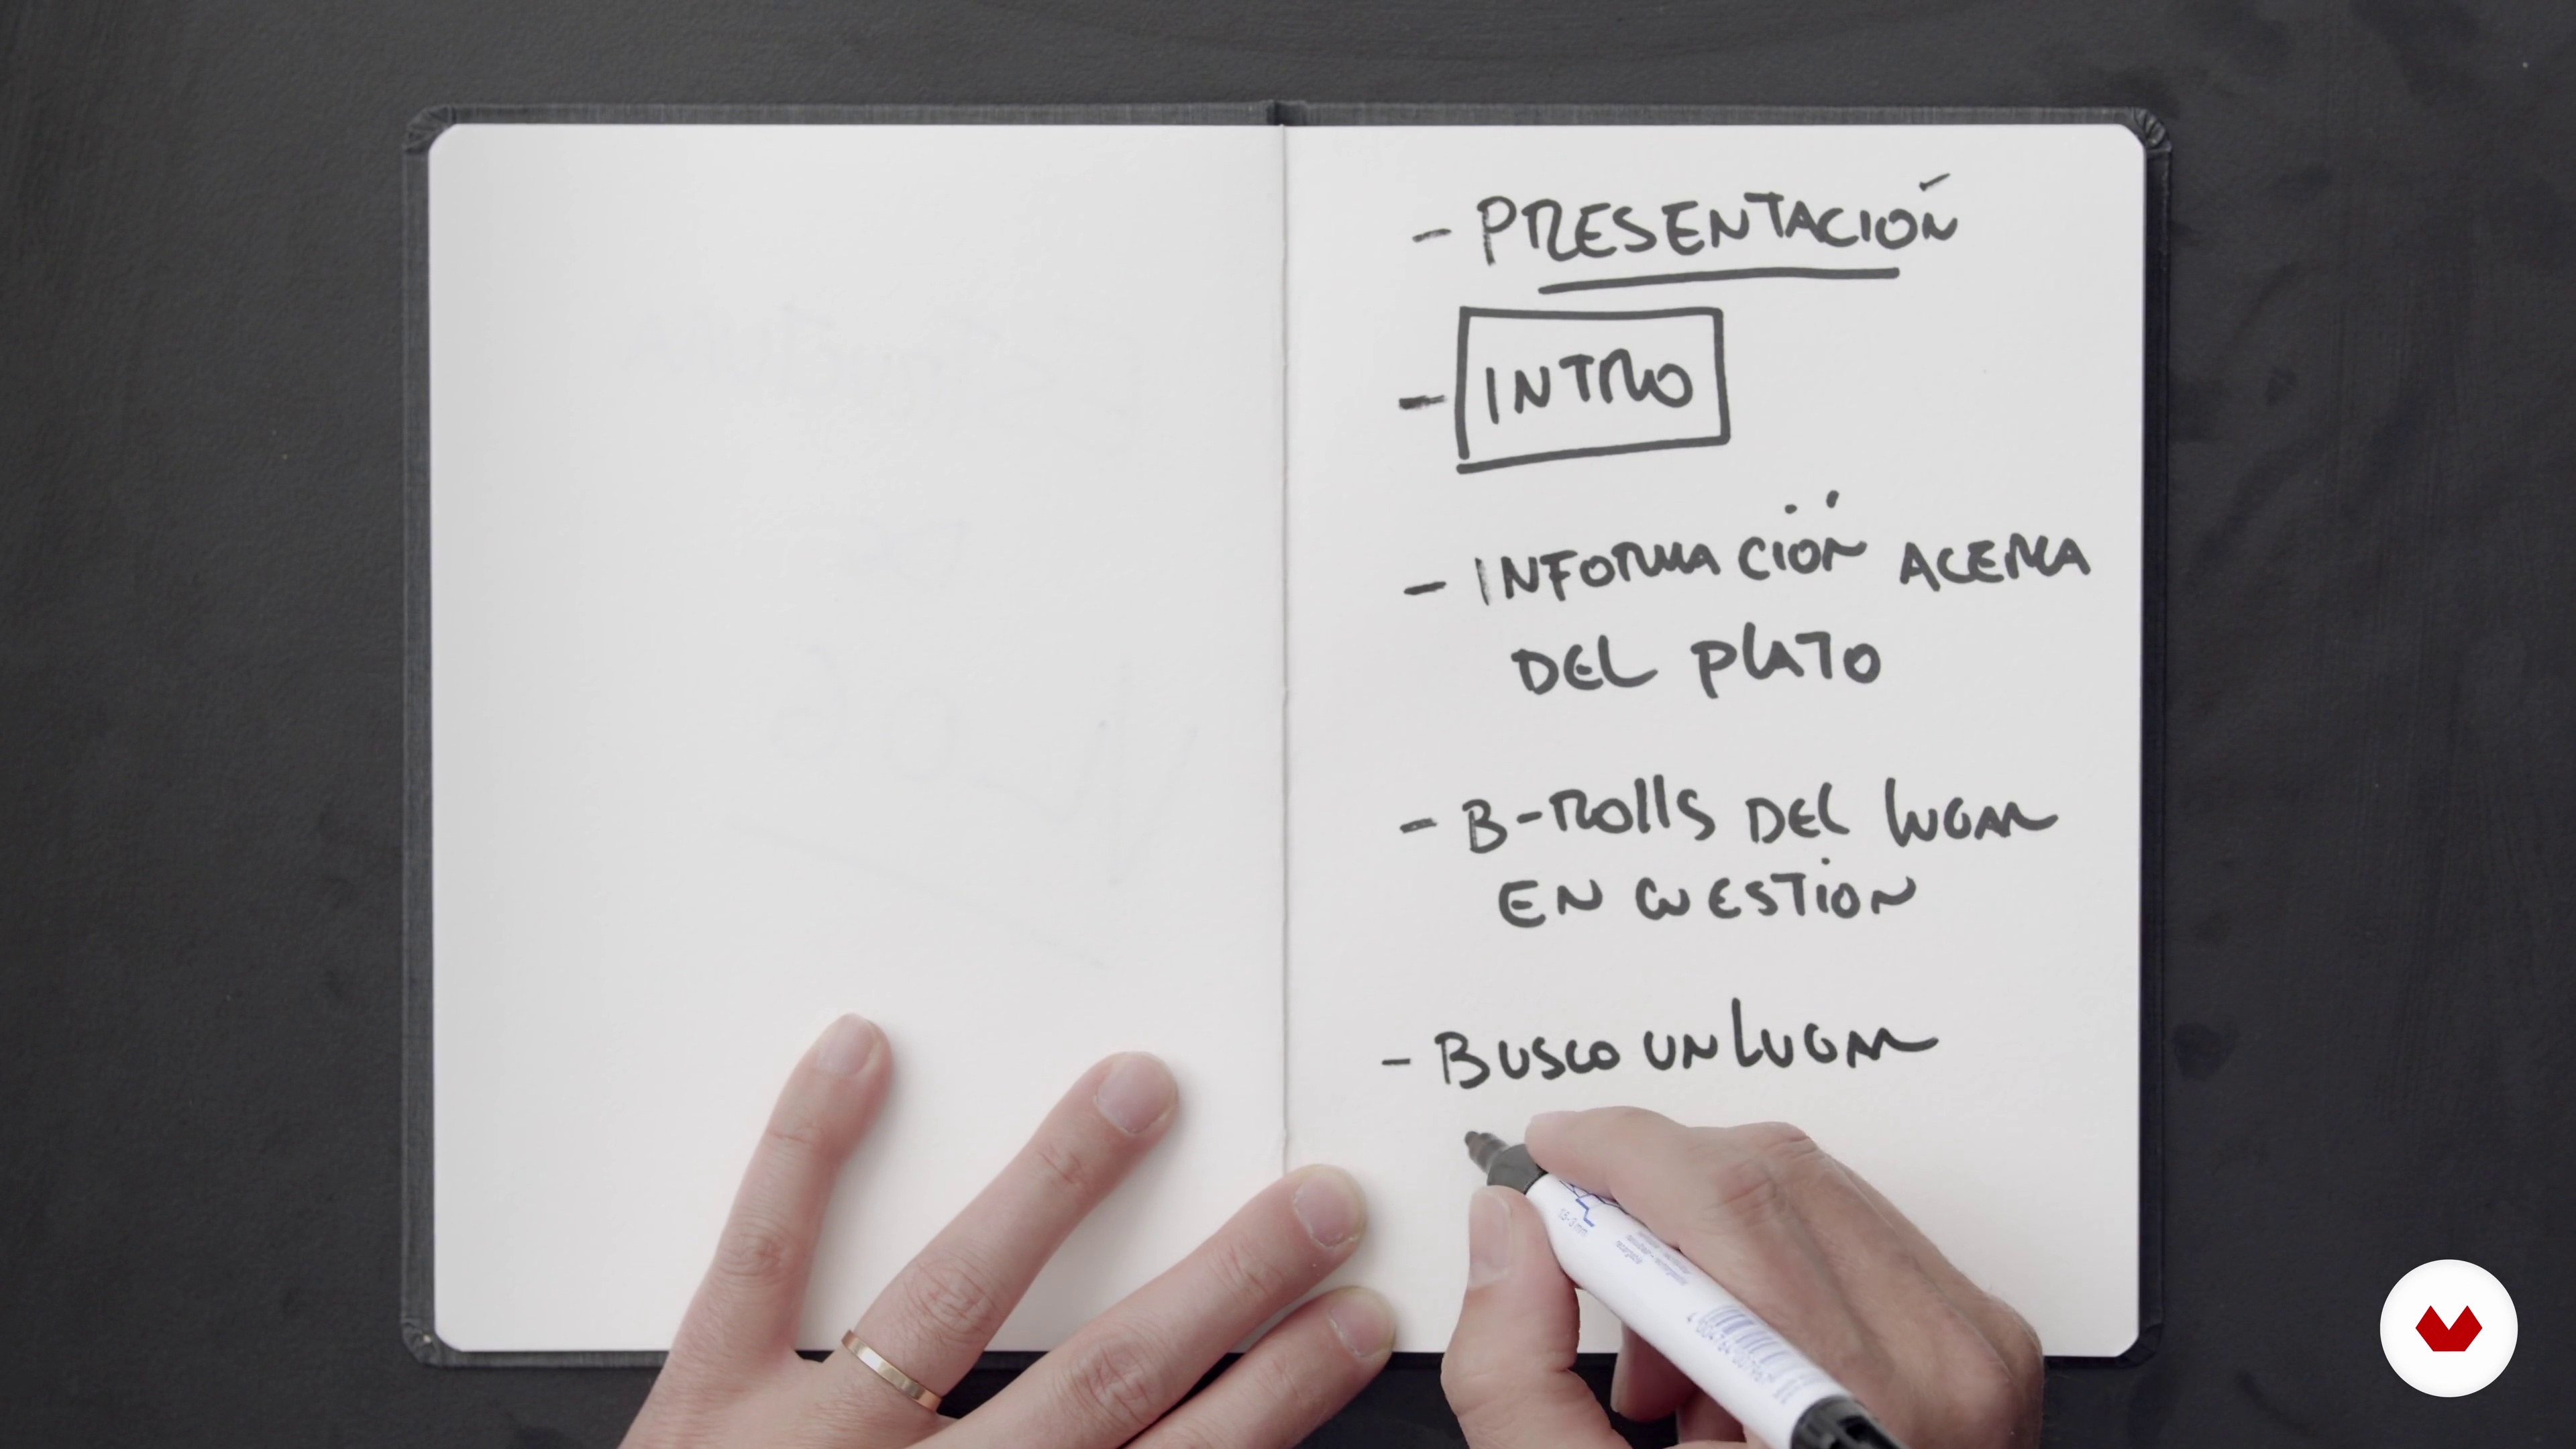 - PRESENTACIÓN
- INTRO
- INFORMACIÓN ACERCA
DEL PLATO
- B-ROLLS DEL LUGAR
EN CUESTION
- BUSCO UN LUGAR